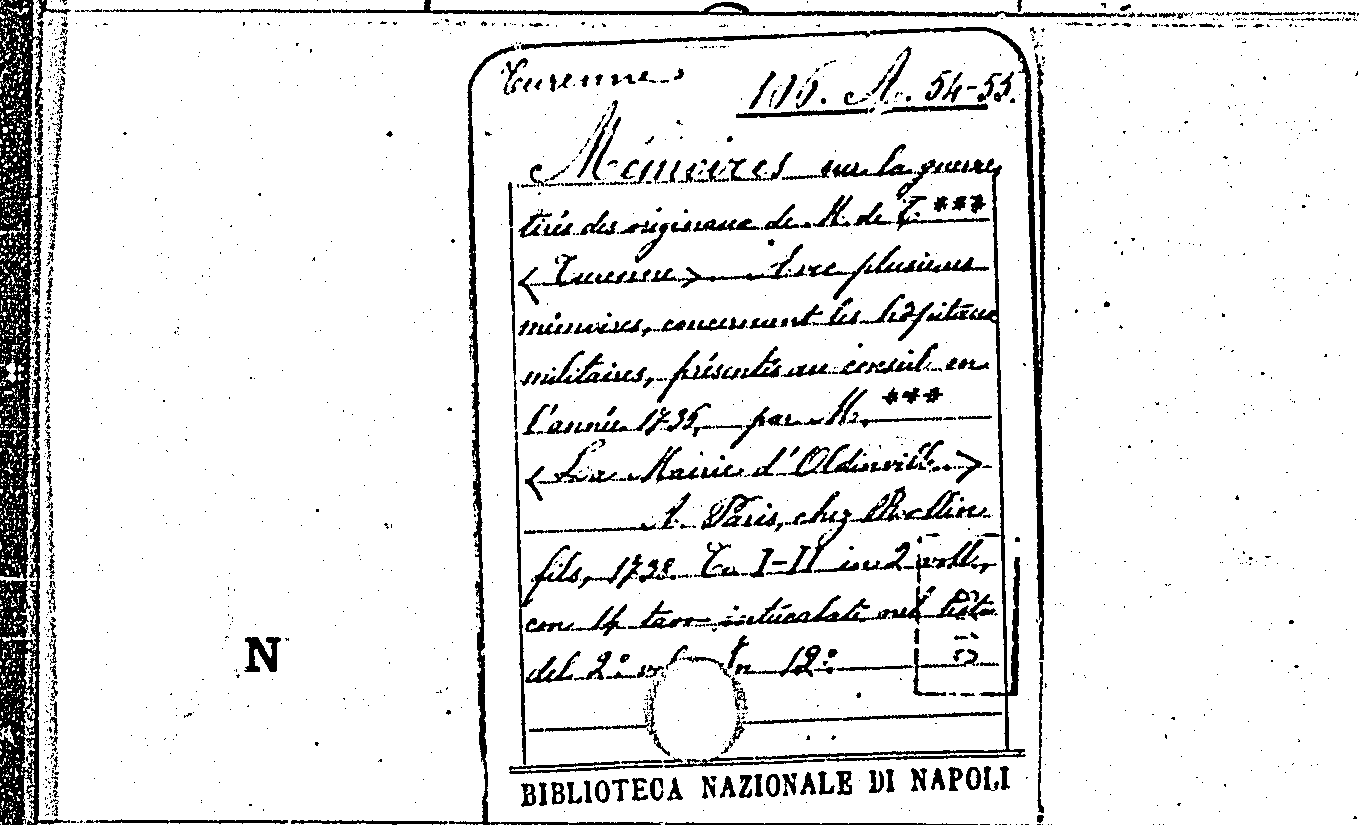 Turenne
106. A. 54-55.
Mémoires sur la guerre
tirés des originaux de M. de T. ***
< Turenne > Avec plusieurs
mémoires, concernant les hôpitaux
militaires, présentés au conseil en
l'année 1736, par M. ***
< La Mairie d'Oldinville >
A Paris, chez Rollin
fils, 1738. To I-II in 2 voll.,
con 14 tavv intercalate nel testo
del 2.º vol In 12.º
N
BIBLIOTECA NAZIONALE DI NAPOLI